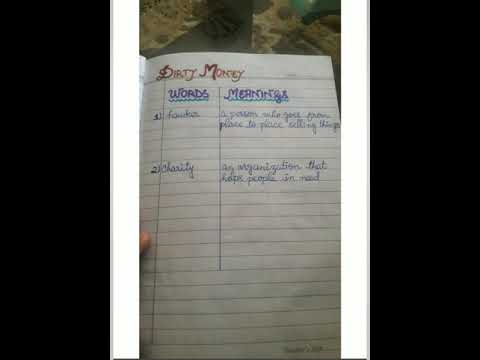 DIRTY MONEY
WORDS MEANINGS
1) hawker a person who goes from
place to place selling things
2) Charity an organization that
helps people in need